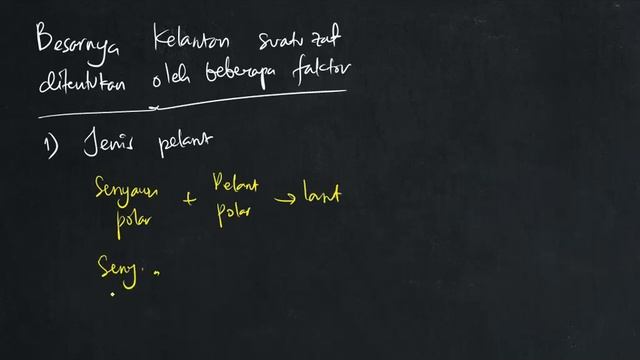 Besarnya Kelarutan suatu zat
ditentukan oleh beberapa faktor
1) Jenis pelarut
Senyawa + Pelarut → larut
polar polar
Seny..